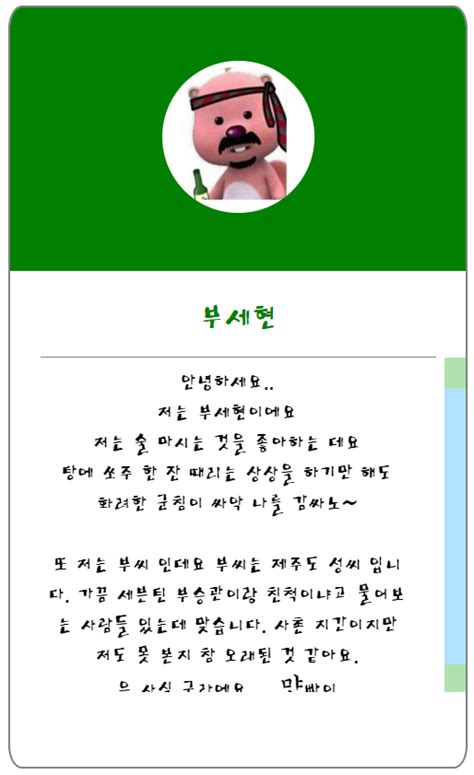 부세현
안녕하세요..
저는 부세현이에요
저는 술 마시는 것을 좋아하는 데요
탕에 쏘주 한 잔 때리는 상상을 하기만 해도
화려한 군침이 싸악 나를 감싸노~
또 저는 부씨 인데요 부씨는 제주도 성씨 입니
다. 가끔 세븐틴 부승관이랑 친척이냐고 물어보
는 사람들 있는데 맞습니다. 사촌 지간이지만
저도 못 본지 참 오래된 것 같아요.
사실 구라에요